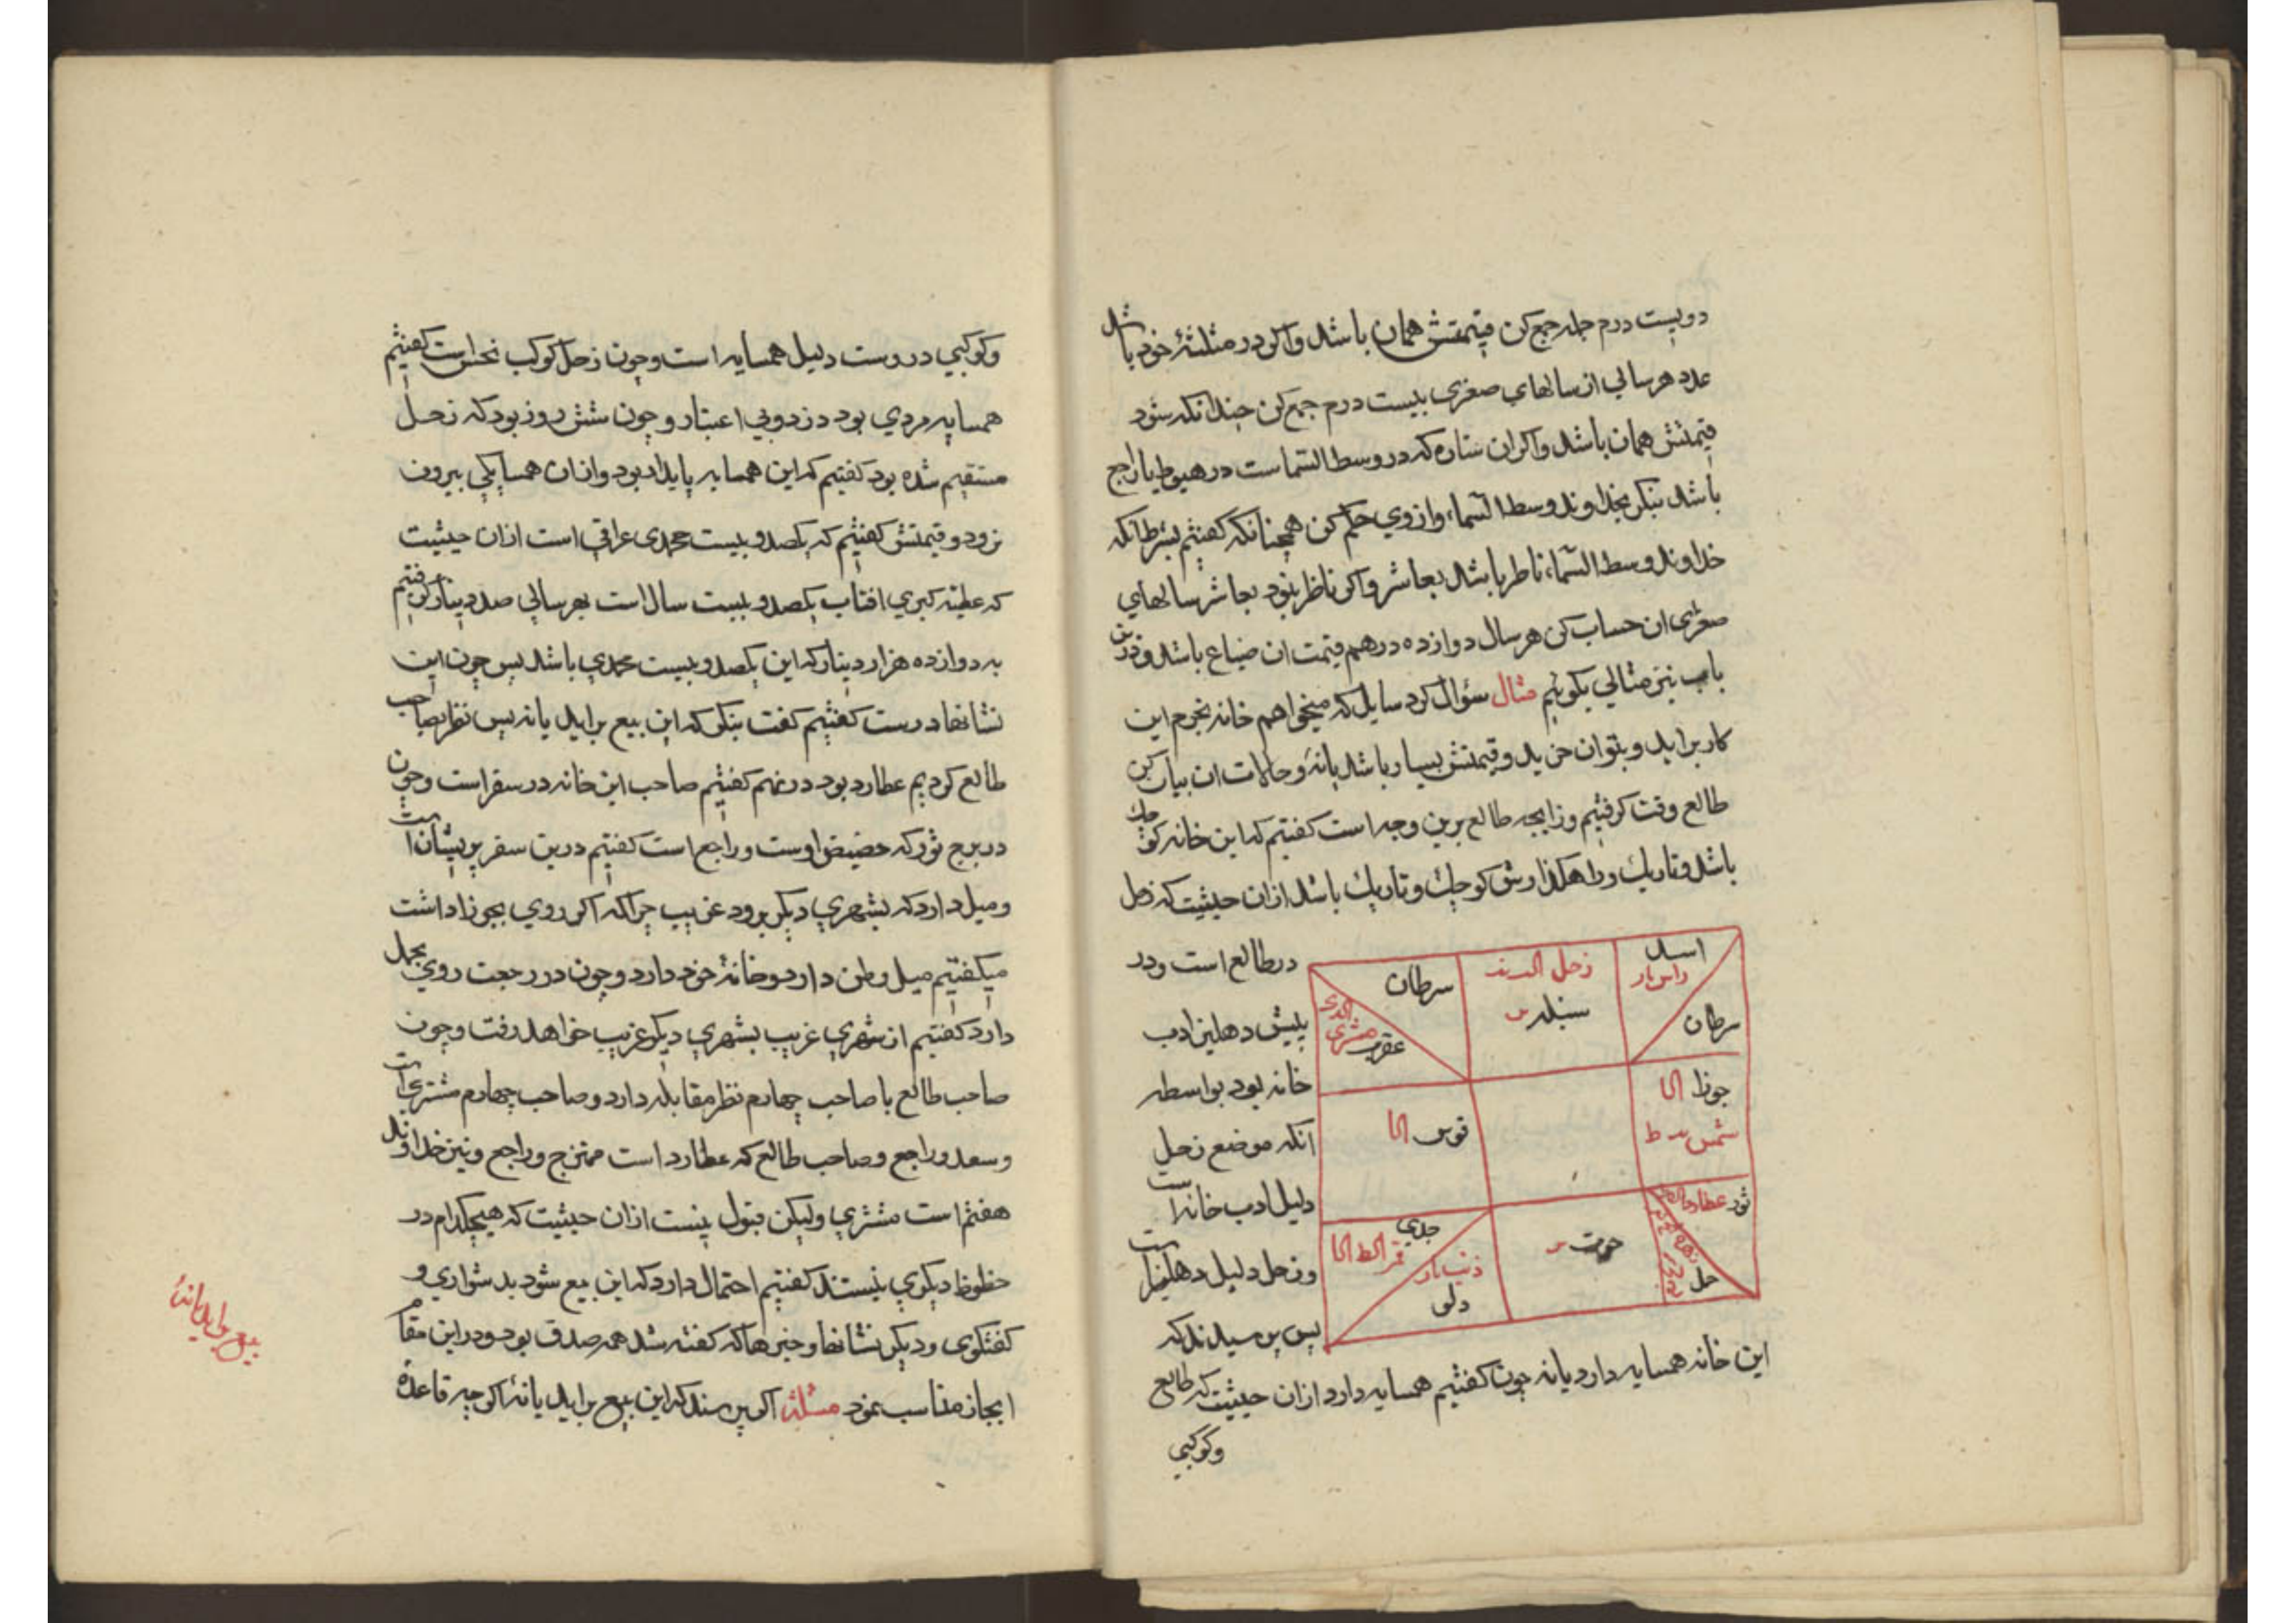 دویست درم جمله جمع کن قیمتش همان باشد واکر در مثلثهٔ خود باشد
عدد هر سالی از سالهای صغری بیست درم جمع کن چندانکه شود
قیمتش همان باشد واکر ان ستاره که در وسط السما است در هبوط یا راجع
باشد بنکر بخداوند وسط السماء وازوی حکم کن همچنانکه کفتیم بشرط انکه
خداوند وسط السماء ناظر باشد بعاشر واکر ناظر نبود بعاشر سالهای
صغری ان حساب کن هر سال دوازده درهم قیمت ان ضیاع باشد ودرین
باب نیز مثالی بکوئیم مثال سؤال کرد سایل که میخواهم خانه بخرم این
کار براید وبتوان خرید وقیمتش بسیار باشد یا نه وحالات ان بیان کن
طالع وقت کرفتیم وزایجه طالع برین وجه است کفتیم که این خانه کوچک
باشد وتاریک وراهکذارش کوچک وتاریک باشد ازان حیثیت که زحل
در طالع است ودر
پلیش دهلیز ادب
خانه بود بواسطه
انکه موضع زحل
دلیل ادب خانه است
وزحل دلیل دهلیز است
پس پرسیدند که
اسد
راس
سرطان
زحل
سنبله
سرطان
مشتری
عقرب
جوزا
شمس
قوس
ثور عطارد
زهره
حمل
حوت
جدی
قمر
ذنب
دلو
این خانه همسایه دارد یا نه چون کفتیم همسایه دارد ازان حیثیت که طالع
وکوکبی
وکوکبی دروست دلیل همسایه است وچون زحل کوکب نحس است کفتیم
همسایه مردی بود دزد وبی اعتبار وچون شش روز بود که زحل
مستقیم شده بود کفتیم که این همسایه پایدار بود وازان همسایکی بیرون
نرود وقیمتش کفتیم که یکصد و بیست محمدی عراقی است ازان حیثیت
که عطیه کبری افتاب یکصد و بیست سال است بهر سالی صد دینار کرفتیم
به دوازده هزار دینار که این یکصد و بیست محمدی باشد پس چون این
نشانها درست کفتیم کفت بنکر که این بیع براید یا نه پس نظر بصاحب
طالع کردیم عطارد بود در نهم کفتیم صاحب این خانه در سفر است وچون
در برج ثور که حضیض اوست وراجع است کفتیم درین سفر پریشان است
ومیل دارد که بشهری دیکر برود غریب چراکه اکر روی بجوزا داشت
میکفتیم میل وطن دارد وخانهٔ خود دارد وچون در رجعت روی بحمل
دارد کفتیم از شهری غریب بشهری دیکر غریب خواهد رفت وچون
صاحب طالع با صاحب چهارم نظر مقابله دارد وصاحب چهارم مشتری است
وسعد وراجع وصاحب طالع که عطارد است ممتزج وراجع ونیز خداوند
هفتم است مشتری ولیکن قبول نیست ازان حیثیت که هیچکدام در
حظوظ دیکری نیستند کفتیم احتمال دارد که این بیع شود بدشواری و
کفتکوی ودیکر نشانها وخبرها که کفته شد همه صدق بود ودر این مقام
ایجاز مناسب نمود مسئله اکر پرسند که این بیع براید یا نه اکرچه قاعدهٔ
بیع براید یا نه